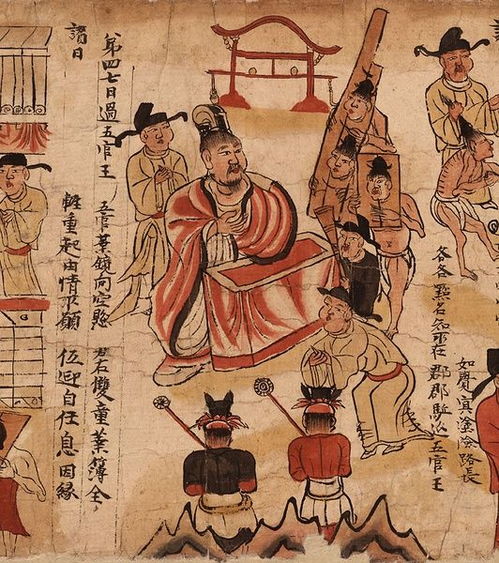 如覺冥塗險路長
各各點名知所在 郡郡駈送五官王
弟四七日過五官王 五官業鏡向空懸 左右雙童業簿全
讃曰 輕重起由情所願 低迎自任息因緣